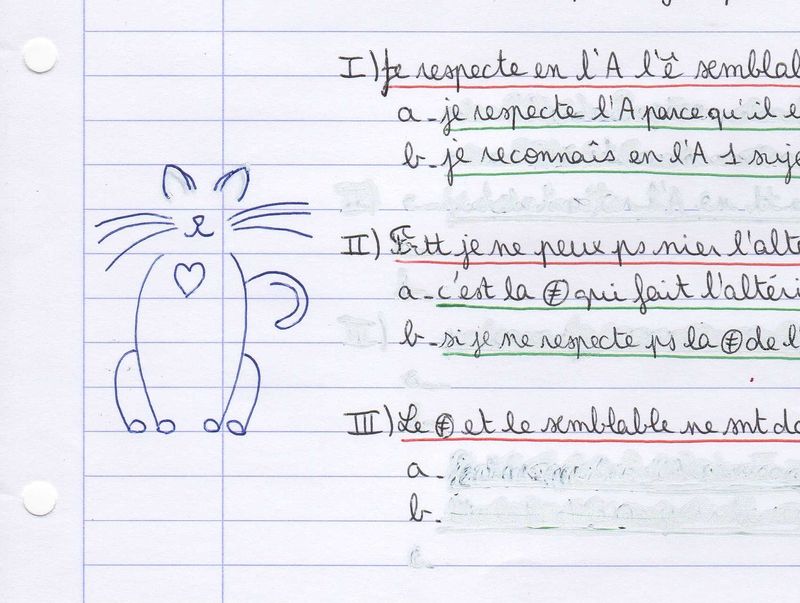 I) Je respecte en l'A l'ê semblal
a - je respecte l'A parce qu'il e
b - je reconnaîs en l'A 1 suje
II) Ett je ne peux ps nier l'alté
a - c'est la ≠ qui fait l'altéri
b - si je ne respecte ps la ≠ de l'
III) Le ≠ et le semblable ne snt dc
a -
b -